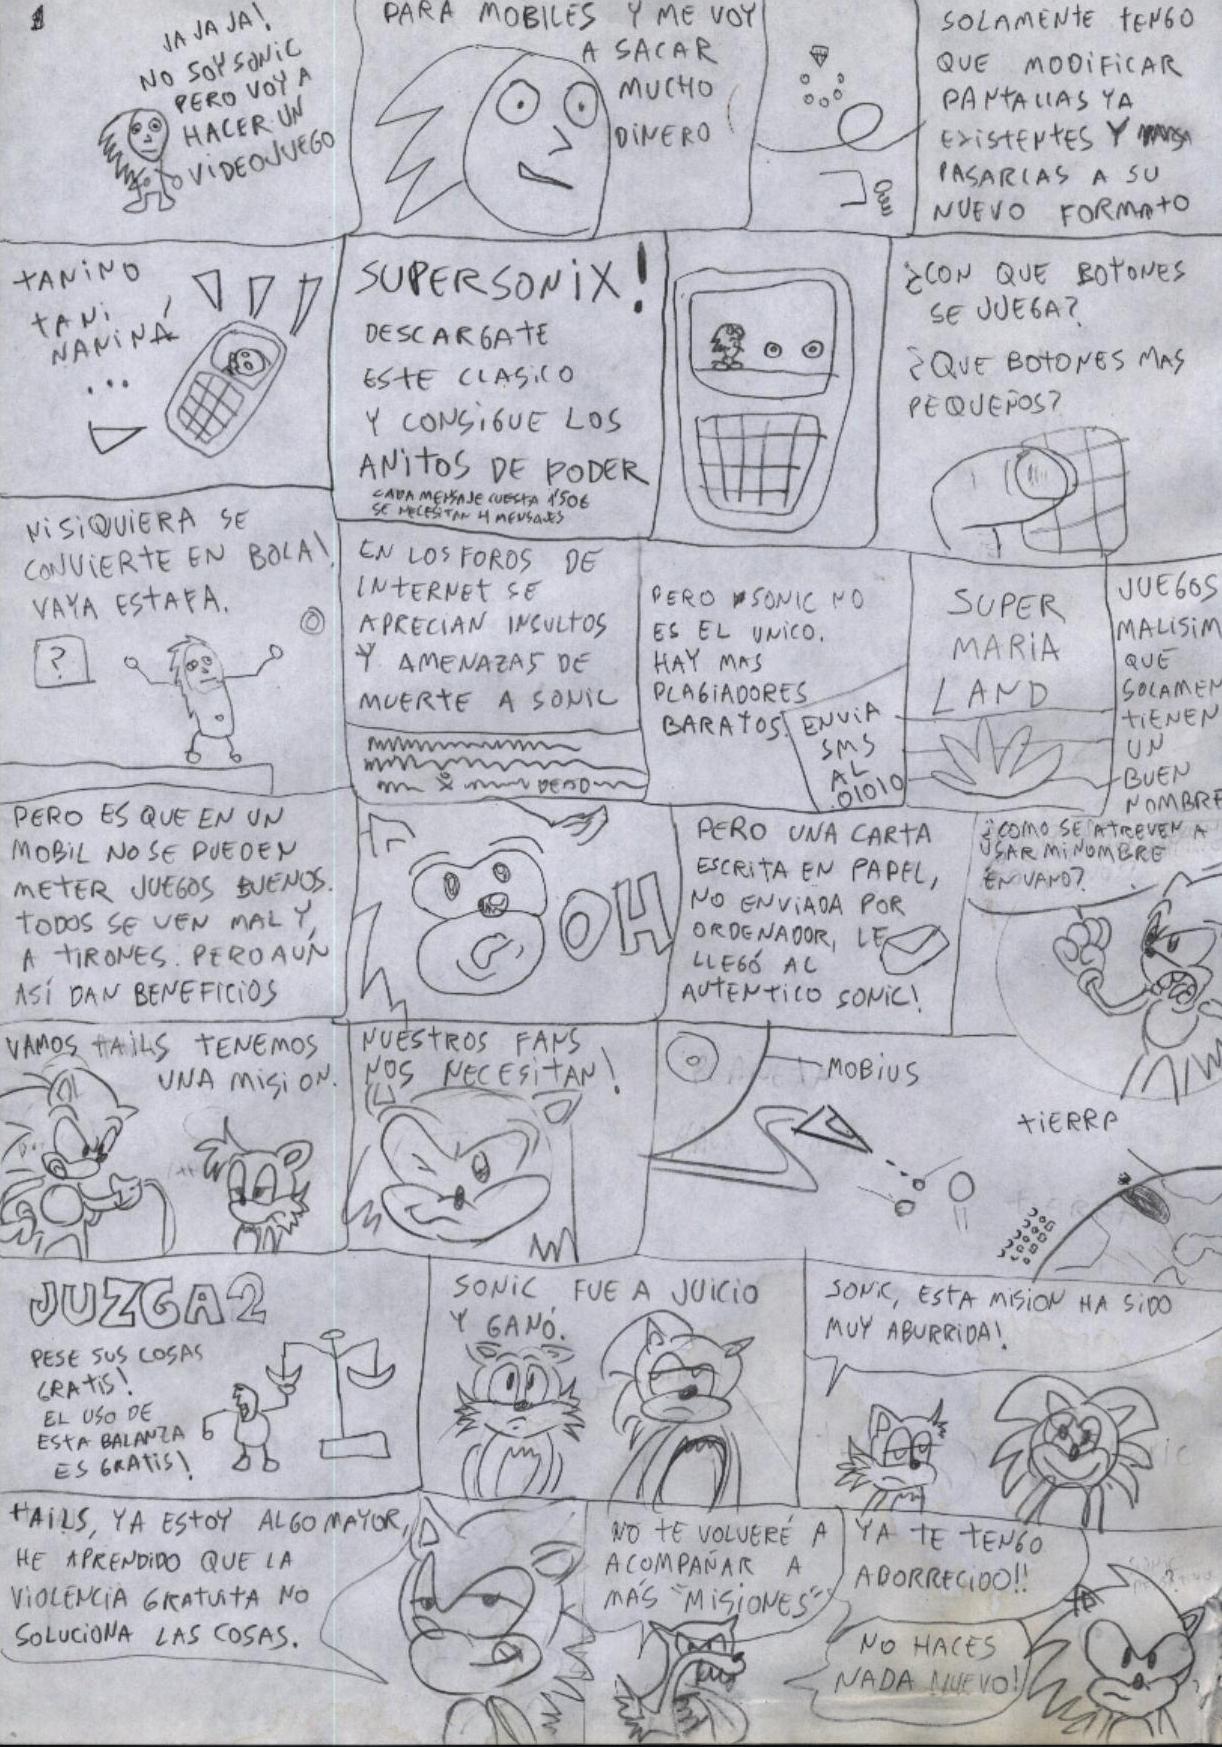 1
JA JA JA!
NO SOY SONIC
PERO VOY A
HACER UN
VIDEOJUEGO
PARA MOBILES Y ME VOY
A SACAR
MUCHO
DINERO
SOLAMENTE TENGO
QUE MODIFICAR
PANTALLAS YA
EXISTENTES Y
PASARLAS A SU
NUEVO FORMATO
TANINO
TANI
NANINÁ
...
SUPERSONIX!
DESCARGATE
ESTE CLASICO
Y CONSIGUE LOS
ANITOS DE PODER
CADA MENSAJE CUESTA 1'50€
SE NECESITAN 4 MENSAJES
¿CON QUE BOTONES
SE JUEGA?
¿QUE BOTONES MAS
PEQUEÑOS?
NISIQUIERA SE
CONVIERTE EN BOLA!
VAYA ESTAFA.
?
EN LOS FOROS DE
INTERNET SE
APRECIAN INSULTOS
Y AMENAZAS DE
MUERTE A SONIC
PERO SONIC NO
ES EL UNICO.
HAY MAS
PLAGIADORES
BARATOS.
ENVIA
SMS
AL
01010
SUPER
MARIA
LAND
JUEGOS
MALISIM
QUE
SOLAMEN
TIENEN
UN
BUEN
NOMBRE
PERO ES QUE EN UN
MOBIL NO SE PUEDEN
METER JUEGOS BUENOS.
TODOS SE VEN MAL Y,
A TIRONES. PERO AUN
ASÍ DAN BENEFICIOS
OH
PERO UNA CARTA
ESCRITA EN PAPEL,
NO ENVIADA POR
ORDENADOR, LE
LLEGÓ AL
AUTENTICO SONIC!
¿COMO SE ATREVEN A
USAR MI NOMBRE
EN VANO?
VAMOS TAILS TENEMOS
UNA MISION.
NUESTROS FANS
NOS NECESITAN!
MOBIUS
TIERRA
JUZGA2
PESE SUS COSAS
GRATIS!
EL USO DE
ESTA BALANZA
ES GRATIS!
SONIC FUE A JUICIO
Y GANÓ.
SONIC, ESTA MISION HA SIDO
MUY ABURRIDA!
TAILS, YA ESTOY ALGO MAYOR,
HE APRENDIDO QUE LA
VIOLENCIA GRATUITA NO
SOLUCIONA LAS COSAS.
NO TE VOLVERÉ A
ACOMPAÑAR A
MÁS "MISIONES"
YA TE TENGO
ABORRECIDO!!
NO HACES
NADA NUEVO!